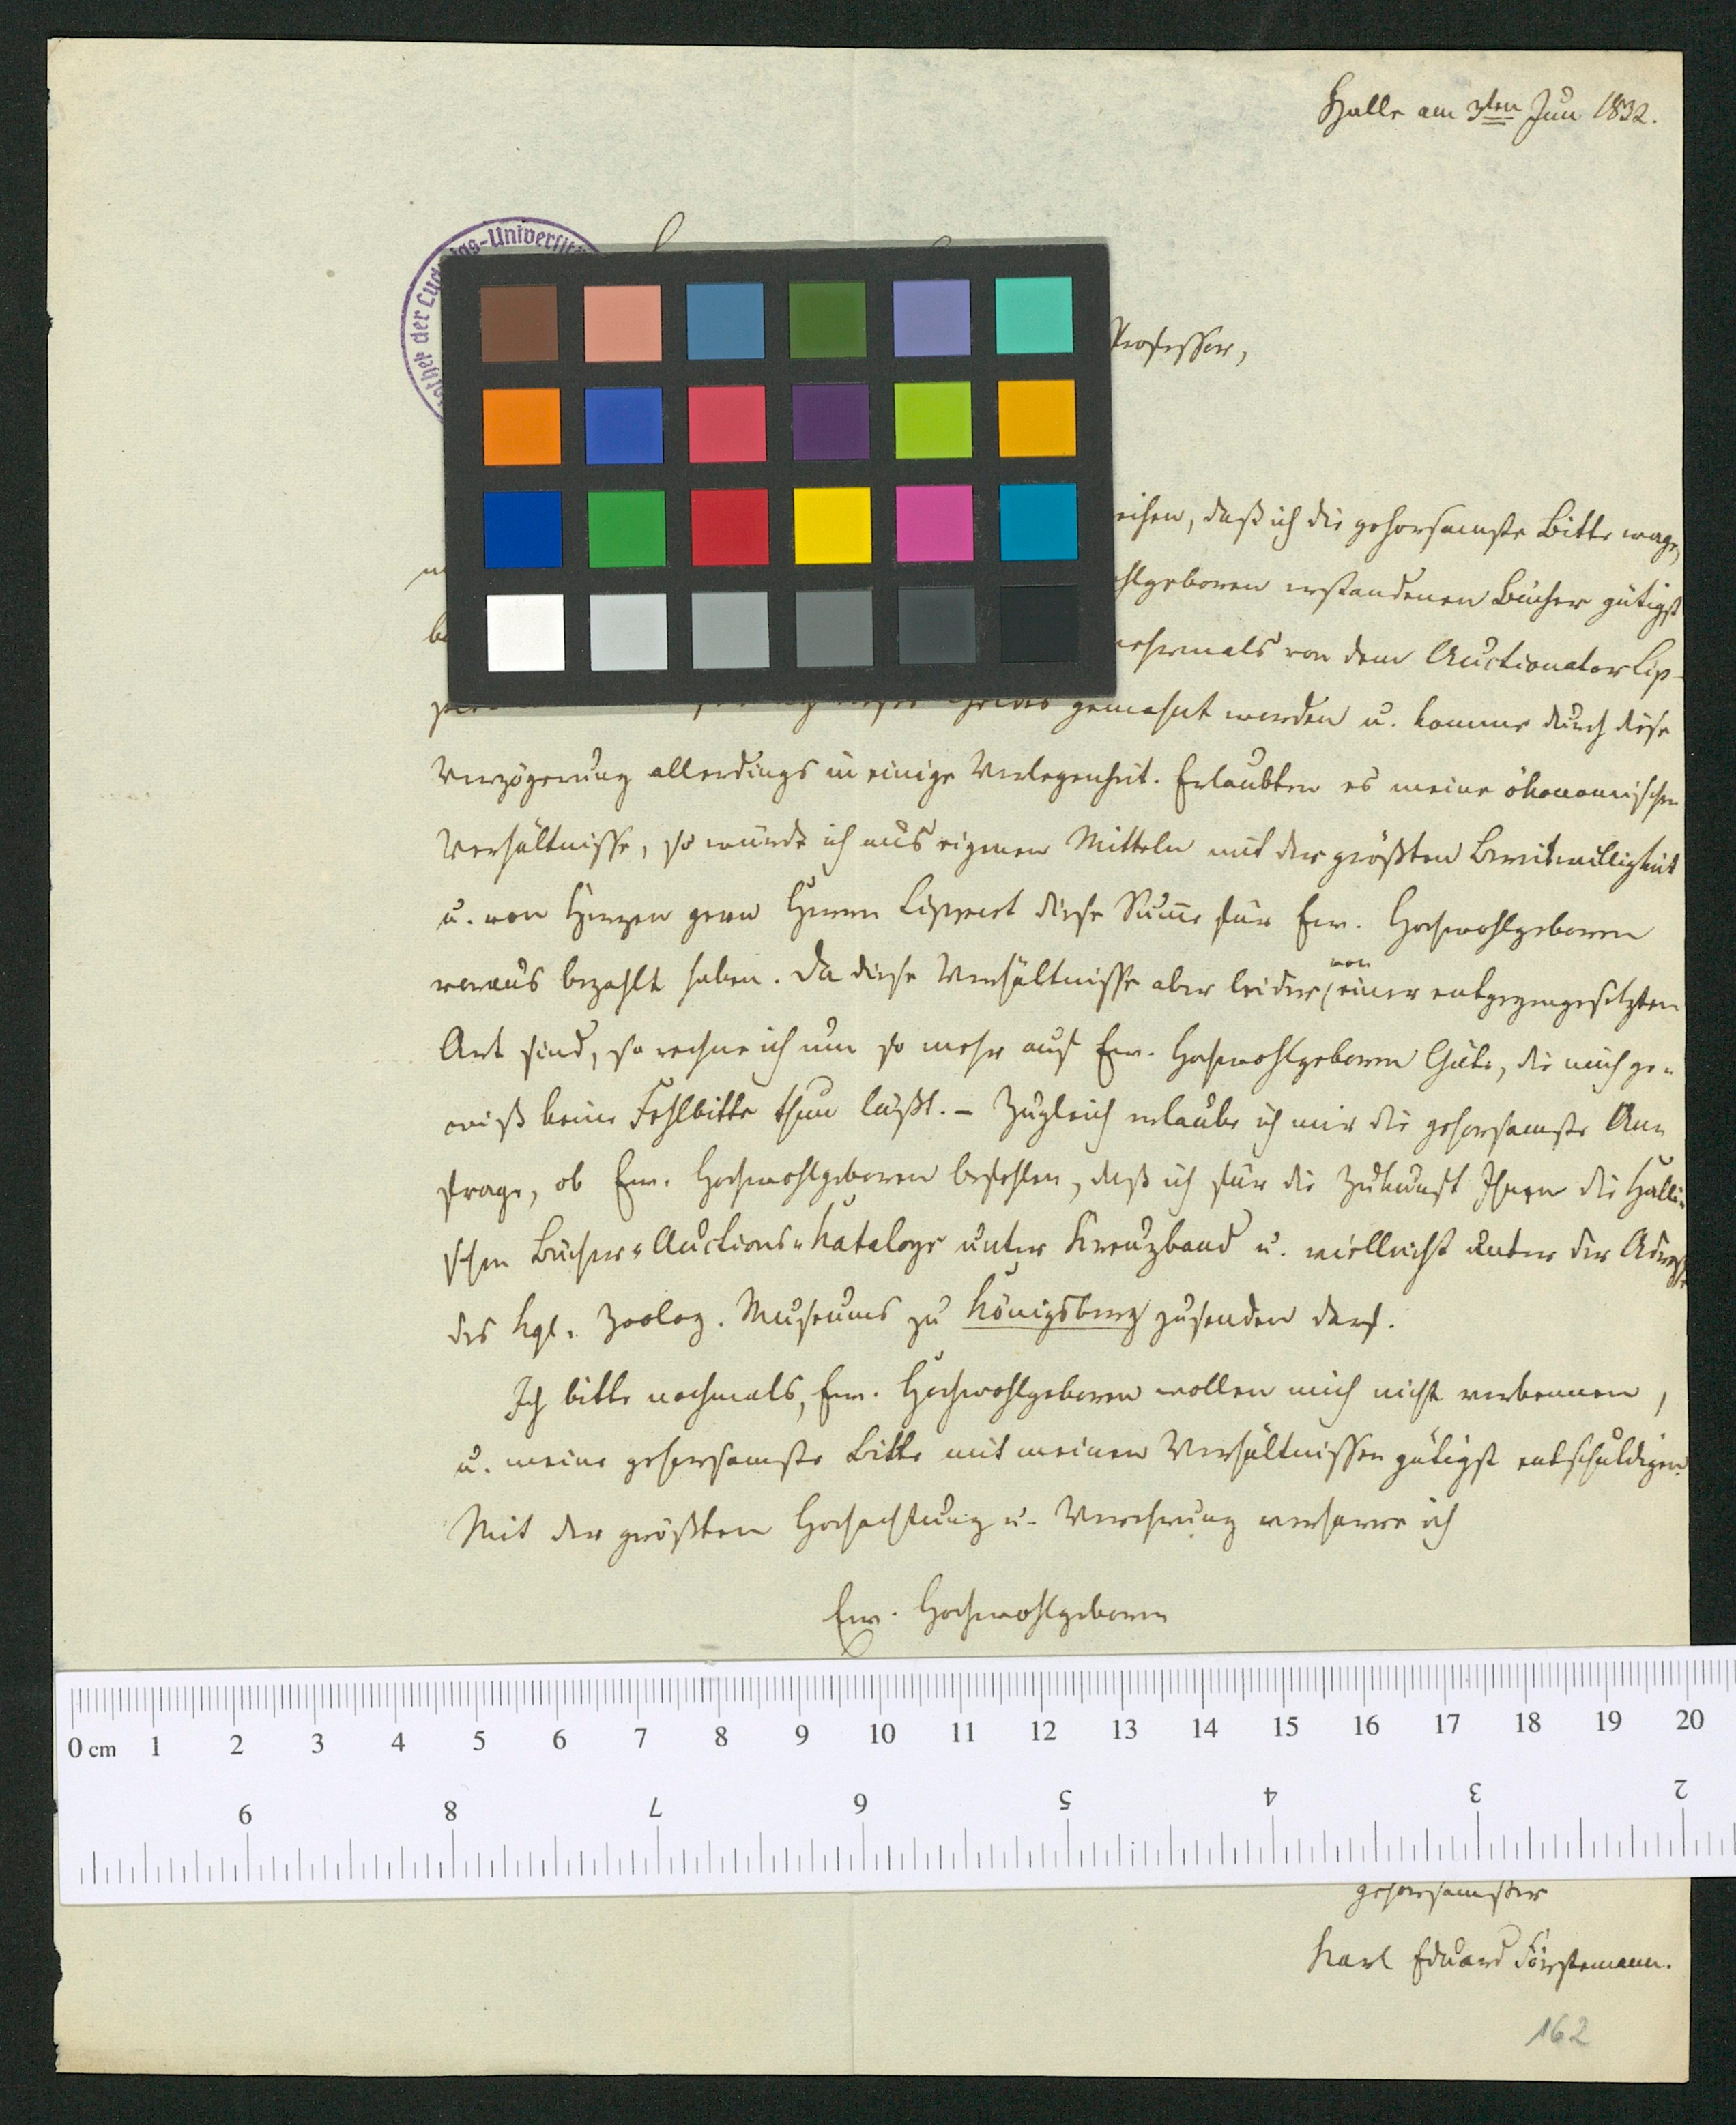 Halle am 3ten Jun 1832.
Professor,
eihen, daß ich die gehorsamste Bitte wage,
hlgeboren erstandenen Bücher gütigst
be
mehrmals von dem Auctionator Lip-
gemahnt worden u. komme durch diese
Verzögerung allerdings in einige Verlegenheit. Erlaubten es meine ökonomischen
Verhältnisse, so würde ich aus eigenen Mitteln mit der größten Bereitwilligkeit
u. von Herzen gern Herrn Lippert diese Sum̅e für Ew. Hochwohlgeboren
voraus bezahlt haben. Da diese Verhältnisse aber leider von einer entgegengesetzten
Art sind, so rechne ich um so mehr auf Ew. Hochwohlgeboren Güte, die mich ge-
wiß keine Fehlbitte thun läßt. – Zugleich erlaube ich mir die gehorsamste An-
frage, ob Ew. Hochwohlgeboren befehlen, daß ich für die Zukunft Ihnen die Halli-
schen Bücher-Auctions-Kataloge unter Kreuzband u. vielleicht unter der Adresse
des kgl. Zoolog. Museums zu Königsberg zusenden darf.
Ich bitte nochmals, Ew. Hochwohlgeboren wollen mich nicht verkennen,
u. meine gehorsamste Bitte mit meinen Verhältnissen gütigst entschuldigen.
Mit der größten Hochachtung u. Verehrung verharre ich
Ew. Hochwohlgeboren
0 cm 1 2 3 4 5 6 7 8 9 10 11 12 13 14 15 16 17 18 19 20
9 8 7 6 5 4 3 2
gehorsamster
Karl Eduard Förstemann.
162